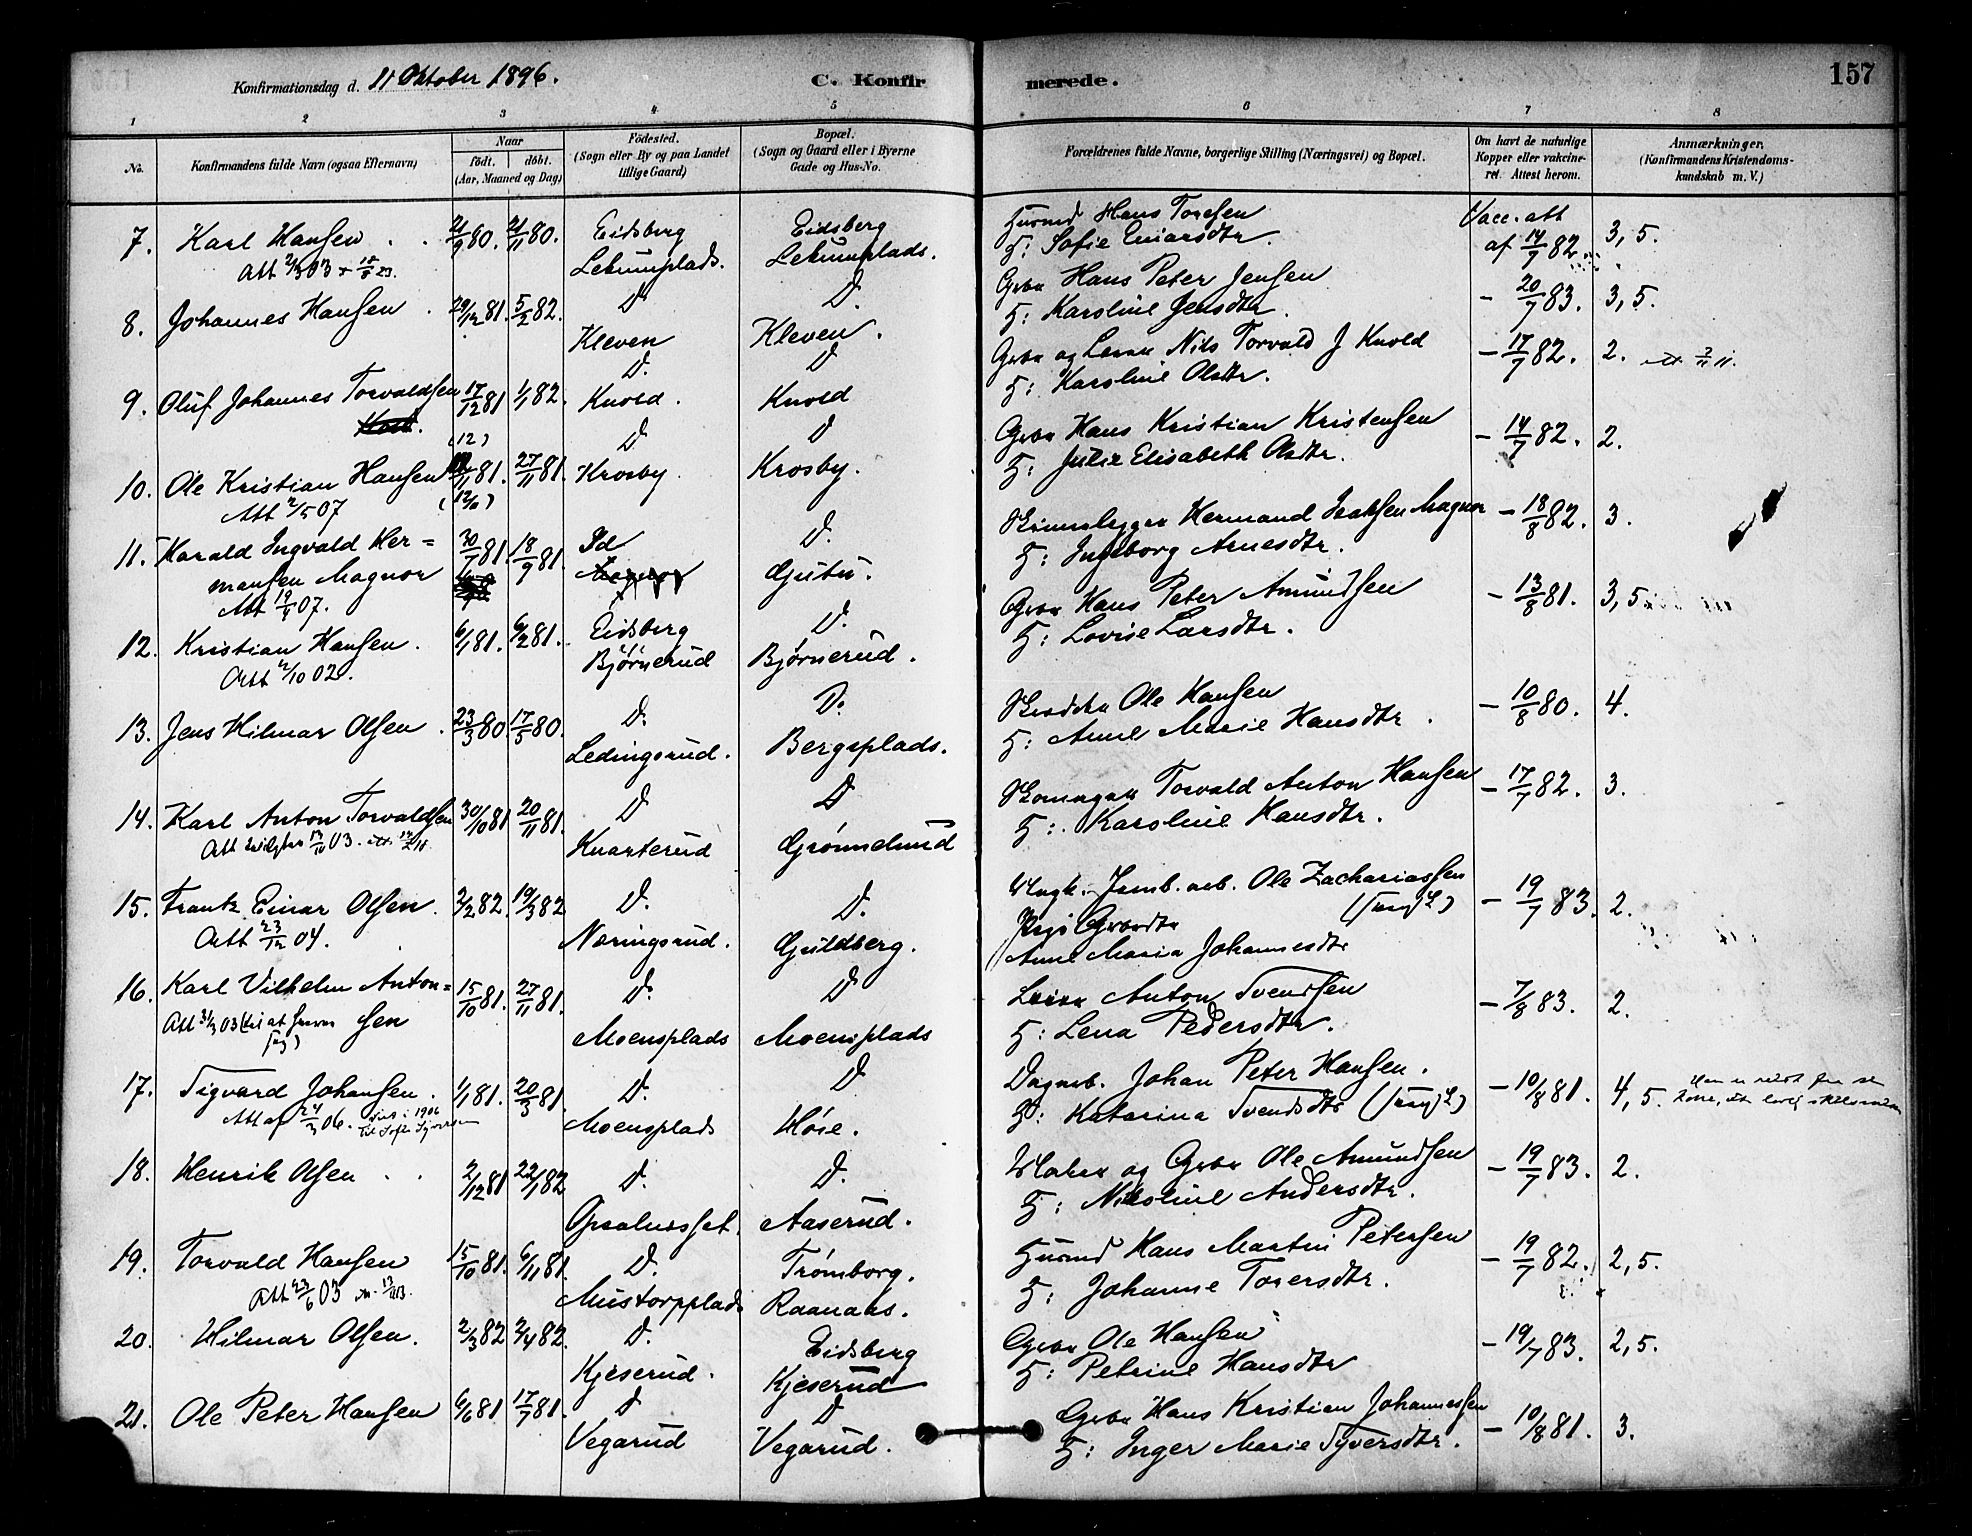 Konfirmationsdag d. 11 Oktober 1896. C. Konfir merede. 157
1 2 3 4 5 6 7 8
No. Konfirmandens fulde Navn (ogsaa Efternavn) Naar födt. döbt. (Aar, Maaned og Dag) Födested. (Sogn eller By og paa Landet tillige Gaard) Bopæl. (Sogn og Gaard eller i Byerne Gade og Hus-No. Forældrenes fulde Navne, borgerlige Stilling (Næringsvei) og Bopæl. Om havt de naturlige Kopper eller vakcineret. Attest herom. Anmærkninger. (Konfirmandens Kristendomskundskab m. V.)
7. Karl Hansen 21/9 80. 21/11 80. Eidsberg Eidsberg Husmd Hans Toresen Vacc. att
Att 2/3 03 Lekumplads. Lekumplads. H: Sofie Einarsdtr. af 14/7 82. 3, 5.
8. Johannes Hansen 29/12 81. 5/2 82. D. D. Gbr Hans Peter Jensen - 20/7 83. 3, 5.
Kleven Kleven. H: Karoline Jensdtr.
9. Oluf Johannes Torvaldsen 17/12 81 1/1 82. D. D Gbr og Nils Torvald J Knold - 17/7 82. 2.
Knold. Knold H: Karoline Olsdtr.
10. Ole Kristian Hansen 81. 27/11 81. D D Gbr Hans Kristian Kristensen - 14/7 82. 2.
Att 2/5 07 Krosby. Krosby. H: Julie Elisabeth Olsdtr.
11. Harald Ingvald Her= 30/7 81. 18/9 81. Id D. Hermand Isaksen Magnor - 18/8 82. 3.
mansen Magnor Gjutu. H: Ingeborg Arnesdtr.
Att 19/4 07.
12. Kristian Hansen. 6/1 81. 6/2 81. Eidsberg D. Gbr Hans Peter Amundsen - 13/8 81. 3, 5.
Att 2/10 02. Bjørnerud Bjørnerud. H: Lovise Larsdtr.
13. Jens Hilmar Olsen. 23/3 80. 17/5 80. D. D. Skrædder Ole Hansen - 10/8 80. 4.
Ledingsrud. Bergsplads. H: Anne Marie Hansdtr.
14. Karl Anton Torvaldsen 30/10 81 20/11 81. D D Skomager Torvald Anton Hansen - 17/7 82. 3.
Kvarterud Grønnelund H: Karoline Hansdtr.
15. Frantz Einar Olsen. 2/2 82. 19/3 82 D. D. Ungk. Ole Zachariassen - 19/7 83. 2.
Att 23/12 04. Næringsrud. Guldberg. Pige
Anne Maria Johannesdtr
16. Karl Vilhelm Anton= 15/10 81. 27/11 81. D. D Anton Svendsen - 7/8 83. 2.
sen Moensplads Moensplads H: Lena Pedersdtr.
17. Sigvard Johansen. 1/1 81. 20/3 81 D. D Dagarb. Johan Peter Hansen. - 10/8 81. 4, 5.
Att af 24/3 06. Moensplads Høie. H: Katarina Svendsdtr
18. Henrik Olsen 2/12 81 22/1 82 D. D. Maler og Gbr Ole Amundsen - 19/7 83. 2.
Aaserud. H: Nikoline Andersdtr.
19. Torvald Hansen 15/10 81. 6/11 81. D. Trømborg. Husmd Hans Martin Petersen - 19/7 82. 2, 5.
Att 23/6 03 Mustorpplads Raanaas. H: Johanne Torersdtr.
20. Hilmar Olsen. 2/3 82 2/4 82. D. Eidsberg Gbr Ole Hansen - 19/7 83. 2, 5.
Kjeserud. Kjeserud H: Petrine Hansdtr
21. Ole Peter Hansen 6/6 81 17/7 81. D D Gbr Hans Kristian Johannessen - 10/8 81. 3.
Vegarud Vegarud. H: Inger Marie Syversdtr.